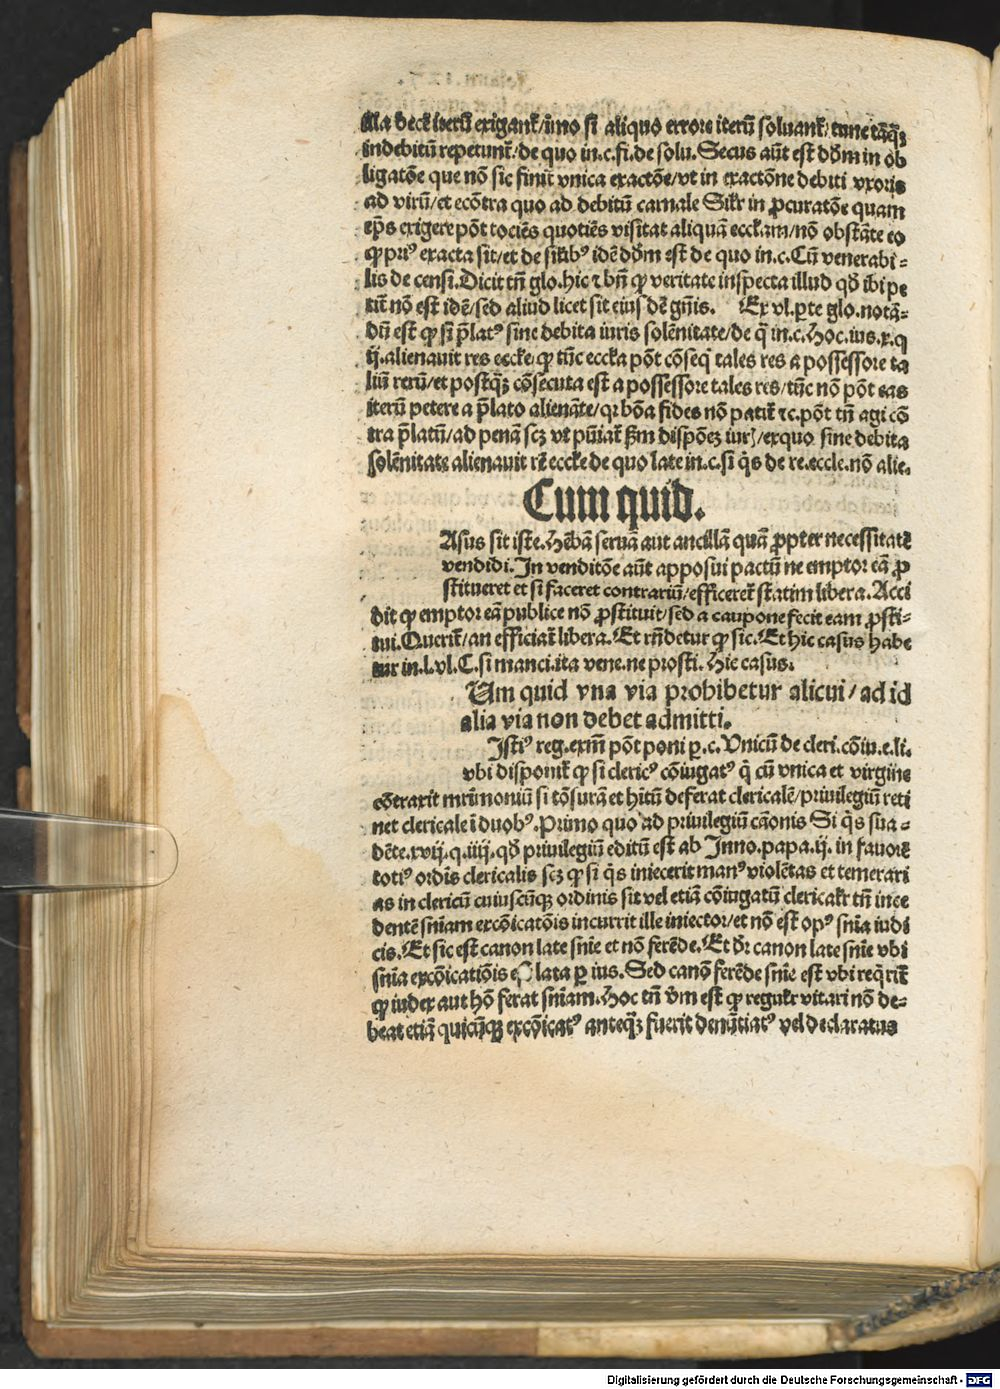 lla decē iterū exigant᷑/ imo si aliquo errore iterū soluant᷑/ tunc tāqȝ
indebitū repetunt᷑/ de quo in.c.fi.de solu. Secus aūt est dōm in ob
ligatōe que nō sic finit᷑ vnica exactōe/ vt in exactōne debiti vxoris
ad virū/ et ecōtra quo ad debitū carnale Silr̄ in ꝓcuratōe quam
ep̄s exigere pōt tociēs quotiēs visitat aliquā ecclām/ nō obstāte eo
ꝙ priꝰ exacta sit/ et de silibꝰ idē dōm est de quo in.c.Cū venerabi⸗
lis de censi. Dicit tn̄ glo.hic ⁊ bn̄ ꝙ veritate inspecta illud qd̄ ibi pe
tit᷑ nō est idē/ sed aliud licet sit eiusdē gn̄is. Ex vl.ꝑte glo.notā⸗
dū est ꝙ si p̄latꝰ sine debita iuris solēnitate/ de q̄ in.c.Hoc.ius.x.q
ij.alienauit res eccl̄e/ ꝙ tūc eccl̄a pōt cōseq̄ tales res a possessore ta
liū rerū/ et postqȝ cōsecuta est a possessore tales res/ tūc nō pōt eas
iterū petere a p̄lato alienāte/ qr bōa fides nō patit᷑ ⁊c.pōt tn̄ agi cō
tra p̄latū/ ad penā scȝ vt puniat᷑ ẜm dispōeȝ iurꝭ/ exquo sine debita
solēnitate alienauit rē eccl̄e de quo late in.c.si q̄s de re.eccle.nō alie.
Cum quid.
Asus sit iste. Hēbā seruā aut ancillā quā ꝓpter necessitatē
vendidi. In venditōe aūt apposui pactū ne emptor eā ꝓ
stitueret et si faceret contrariū/ efficeret᷑ statim libera. Acci
dit ꝙ emptor eā publice nō ꝓstituit/ sed a caupone fecit eam ꝓsti⸗
tui. Querit᷑/ an efficiat᷑ libera. Et rn̄detur ꝙ sic. Et hic casus habe
tur in.l.vl.C.si manci.ita vene.ne prosti. Hic casus.
Um quid vna via prohibetur alicui/ ad id
alia via non debet admitti.
Istiꝰ reg.exm̄ pōt poni ꝑ.c.Vnicū de cleri.cōiu.e.li.
vbi disponit᷑ ꝙ si clericꝰ cōiugatꝰ q̄ cū vnica et virgine
cōtraxit mr̄imoniū si tōsurā et hītū deferat clericalē/ priuilegiū reti
net clericale ī duobꝰ. Primo quo ad priuilegiū cāonis Si q̄s sua⸗
dēte.xvij.q.iiij.qd̄ priuilegiū editū est ab Inno.papa.ij. in fauorē
totiꝰ ordīs clericalis scȝ ꝙ si q̄s iniecerit manꝰ violētas et temerari
as in clericū cuiuscūqȝ ordinis sit vel etiā cōiugatū clericalr̄ tn̄ ince
dentē sn̄iam excōicatōis incurrit ille iniector/ et nō est opꝰ sn̄ia iudi
cis. Et sic est canon late sn̄ie et nō ferēde. Et dr̄ canon late sn̄ie vbi
sn̄ia excōicatiōis lata ꝑ ius. Sed canō ferēde sn̄ie est vbi req̄rit᷑
ꝙ iudex aut hō ferat sn̄iam. Hoc tn̄ v̄m est ꝙ regulr̄ vitari nō de⸗
beat etiā quicūqȝ excōicatꝰ anteqȝ fuerit denūtiatꝰ vel declaratus
Digitalisierung gefördert durch die Deutsche Forschungsgemeinschaft - DFG